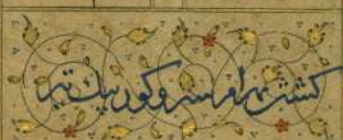 کشتن بهرام شیر و کور بیک تیر